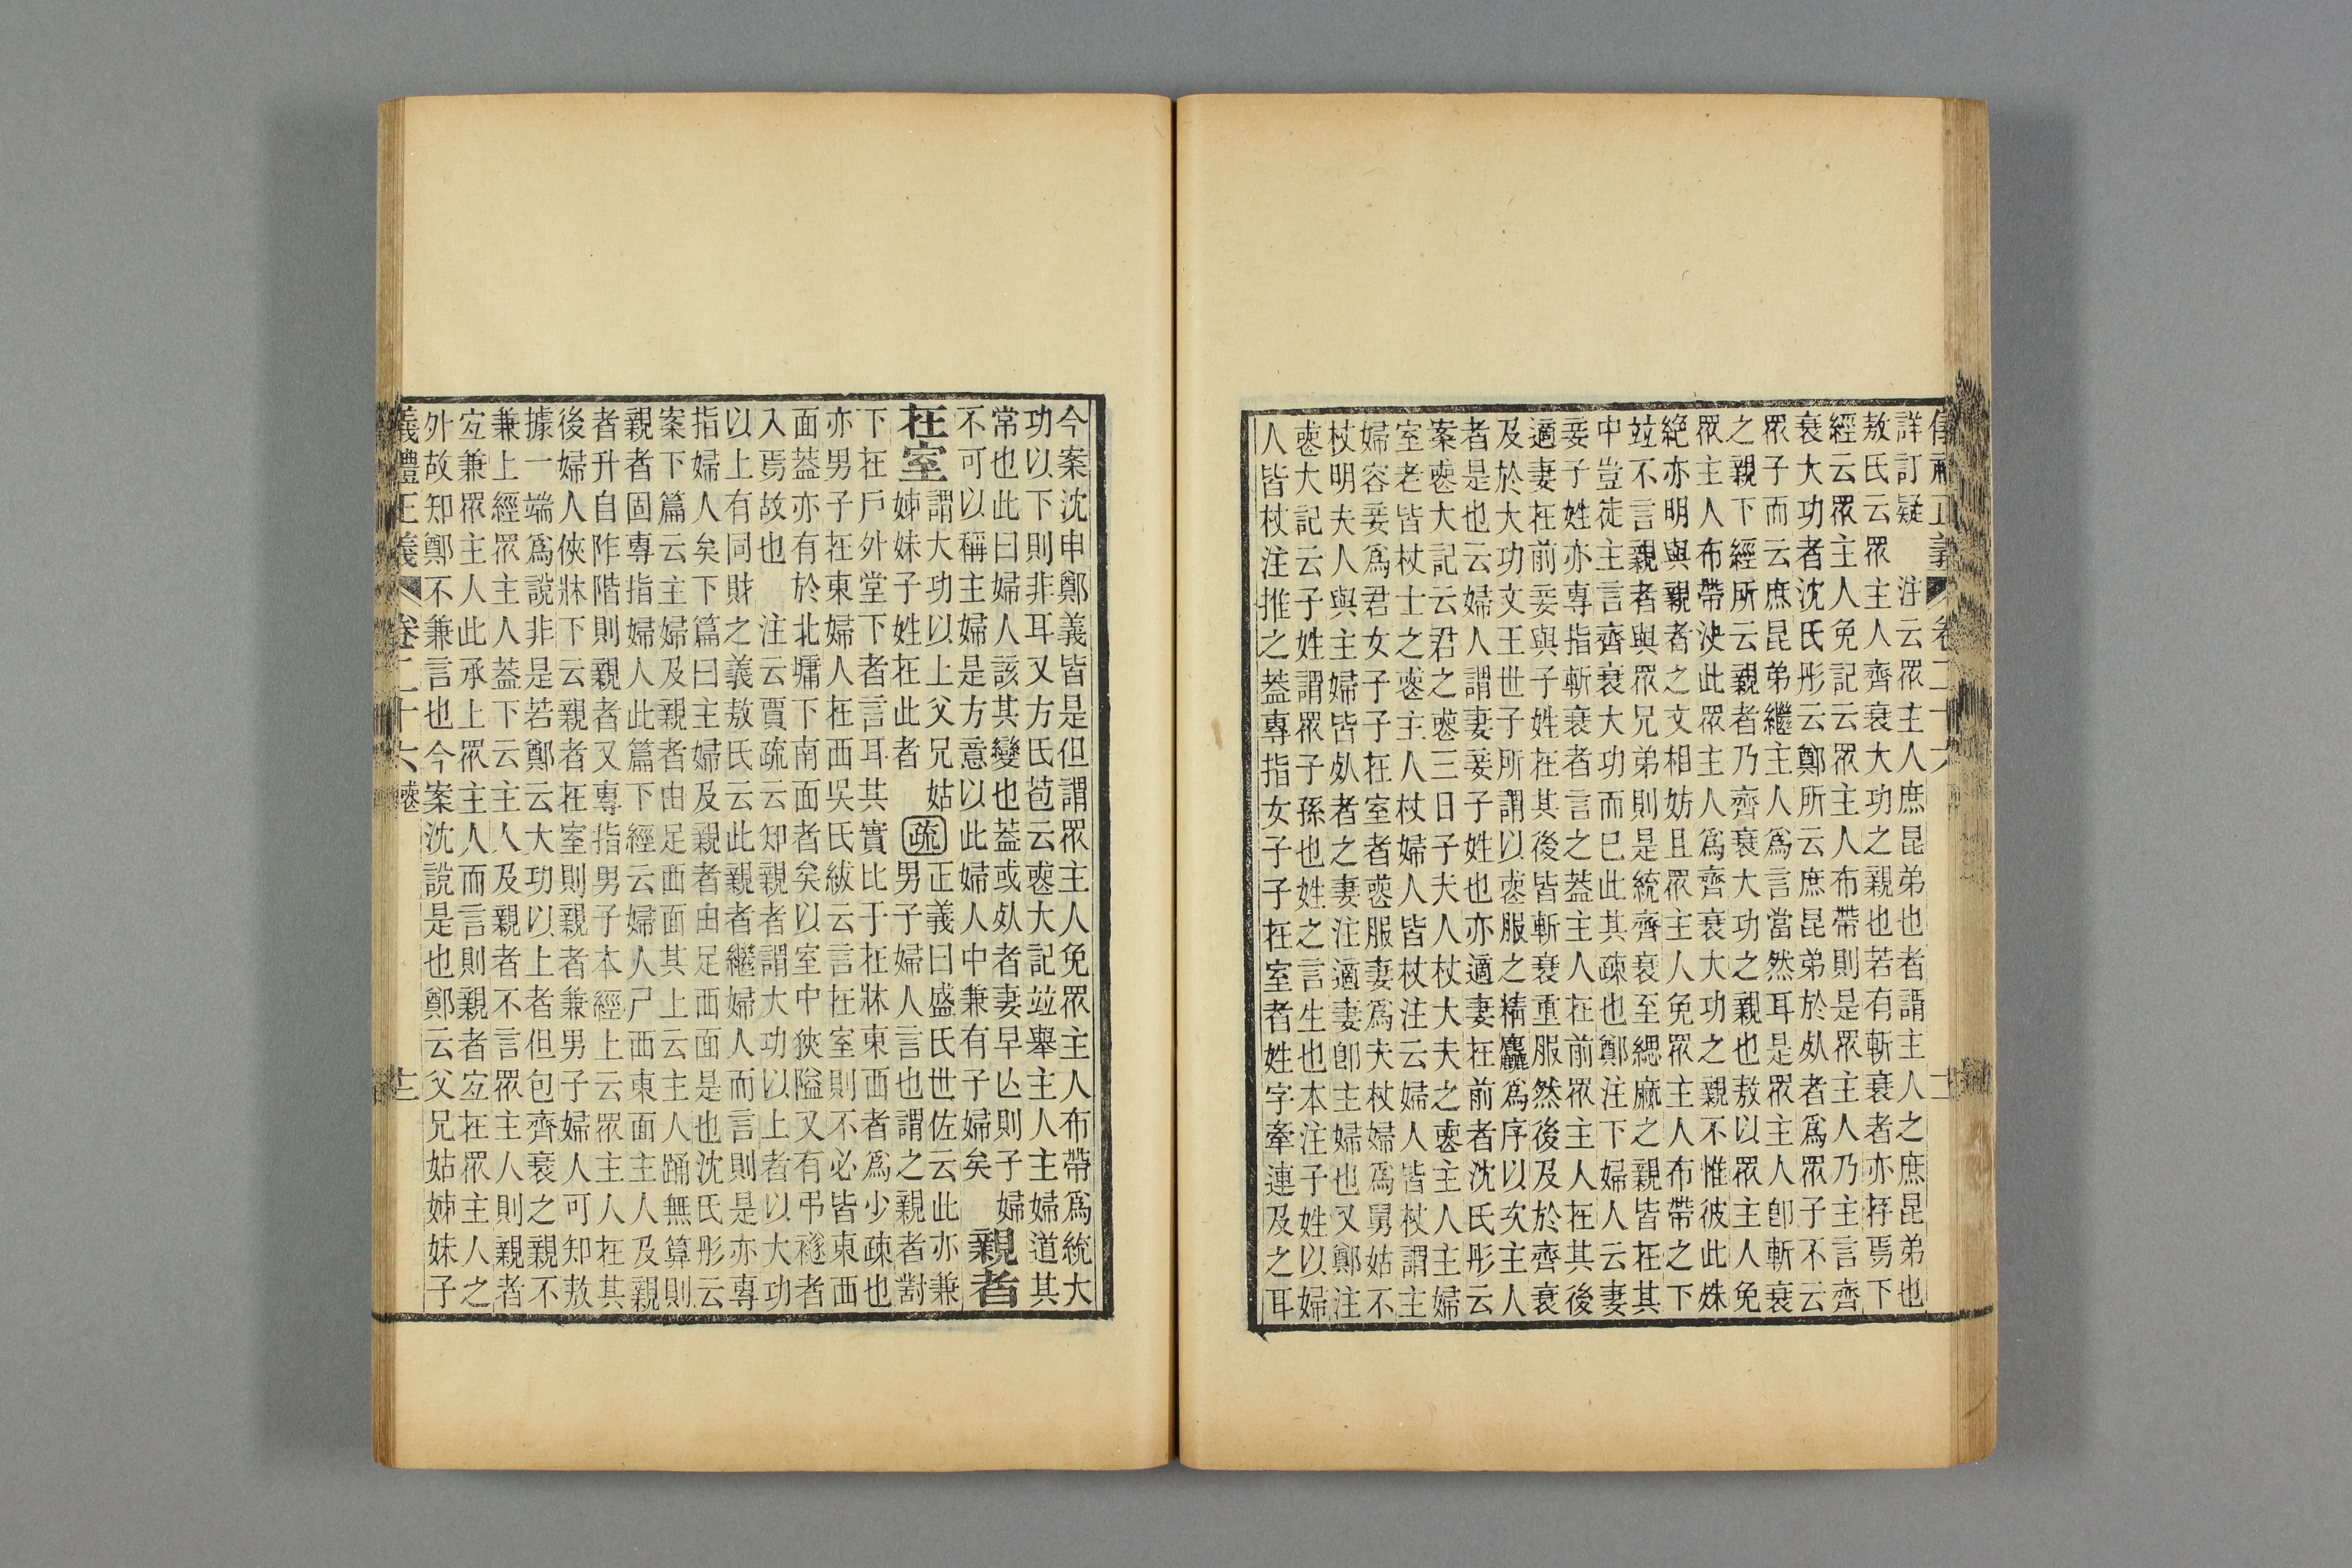 詳訂疑　注云眾主人庶昆弟也者謂主人之庶昆弟也
敖氏云眾主人齊衰大功之親也若有斬衰者亦存焉下
經云眾主人免記云眾主人布帶則是眾主人乃主言齊
衰大功者沈氏彤云鄭所云庶昆弟於㱙者爲眾子不云
眾子而云庶昆弟繼主人爲言當然耳是眾主人卽斬衰
之親下經所云親者乃齊衰大功之親也敖以眾主人免
眾主人布帶決此眾主人爲齊衰大功之親不惟彼此姝
絶亦明與親者之文相妨且眾主人免眾主人布帶之下
竝不言親者與眾兄弟則是統齊衰至緦麻之親皆在其
中豈徒主言齊衰大功而已此其疎也鄭注下婦人云妻
妾子姓亦專指斬衰者言之蓋主人在前眾主人在其後
適妻在前妾與子姓在其後皆斬衰重服然後及於齊衰
及於大功文王世子所謂以喪服之精麤爲序以次主人
者是也云婦人謂妻妾子姓也亦適妻在前者沈氏彤云
案喪大記云君之喪三日子夫人杖大夫之喪主人主婦
室老皆杖士之喪主人杖婦人皆杖注云婦人皆杖謂主
婦容妾爲君女子子在室者喪服妻爲夫杖婦爲舅姑不
杖明夫人與主婦皆㱙者之妻注適妻卽主婦也又鄭注
喪大記云子姓謂眾子孫也姓之言生也本注子姓以婦
人皆杖注推之蓋專指女子子在室者姓字牽連及之耳
今案沈申鄭義皆是但謂眾主人免眾主人布帶爲統大
功以下則非耳又方氏苞云喪大記竝舉主人主婦道其
常也此曰婦人該其變也蓋或㱙者妻早亾則子婦
不可以稱主婦是方意以此婦人中兼有子婦矣
親者
在室
謂大功以上父兄姑
姊妹子姓在此者
疏
正義曰盛氏世佐云此亦兼
男子婦人言也謂之親者對
下在戶外堂下者言耳其實比于在牀東西者爲少疎也
亦男子在東婦人在西吳氏紱云言在室則不必皆東西
面蓋亦有於北墉下南面者矣以室中狹隘又有弔襚者
入焉故也　注云賈疏云知親者謂大功以上者以大功
以上有同財之義敖氏云此親者繼婦人而言則是亦專
指婦人矣下篇曰主婦及親者由足西面是也沈氏彤云
案下篇云主婦及親者由足西面其上云主人踊無算則
親者固專指婦人此篇下經云婦人尸西東面主人及親
者升自阼階則親者又專指男子本經上云眾主人在其
後婦人俠牀下云親者在室則親者兼男子婦人可知敖
據一端爲說非是若鄭云大功以上者但包齊衰之親不
兼上經眾主人蓋下云主人及親者不言眾主人則親者
宜兼眾主人此承上眾主人而言則親者宜在眾主人之
外故知鄭不兼言也今案沈說是也鄭云父兄姑姊妹子